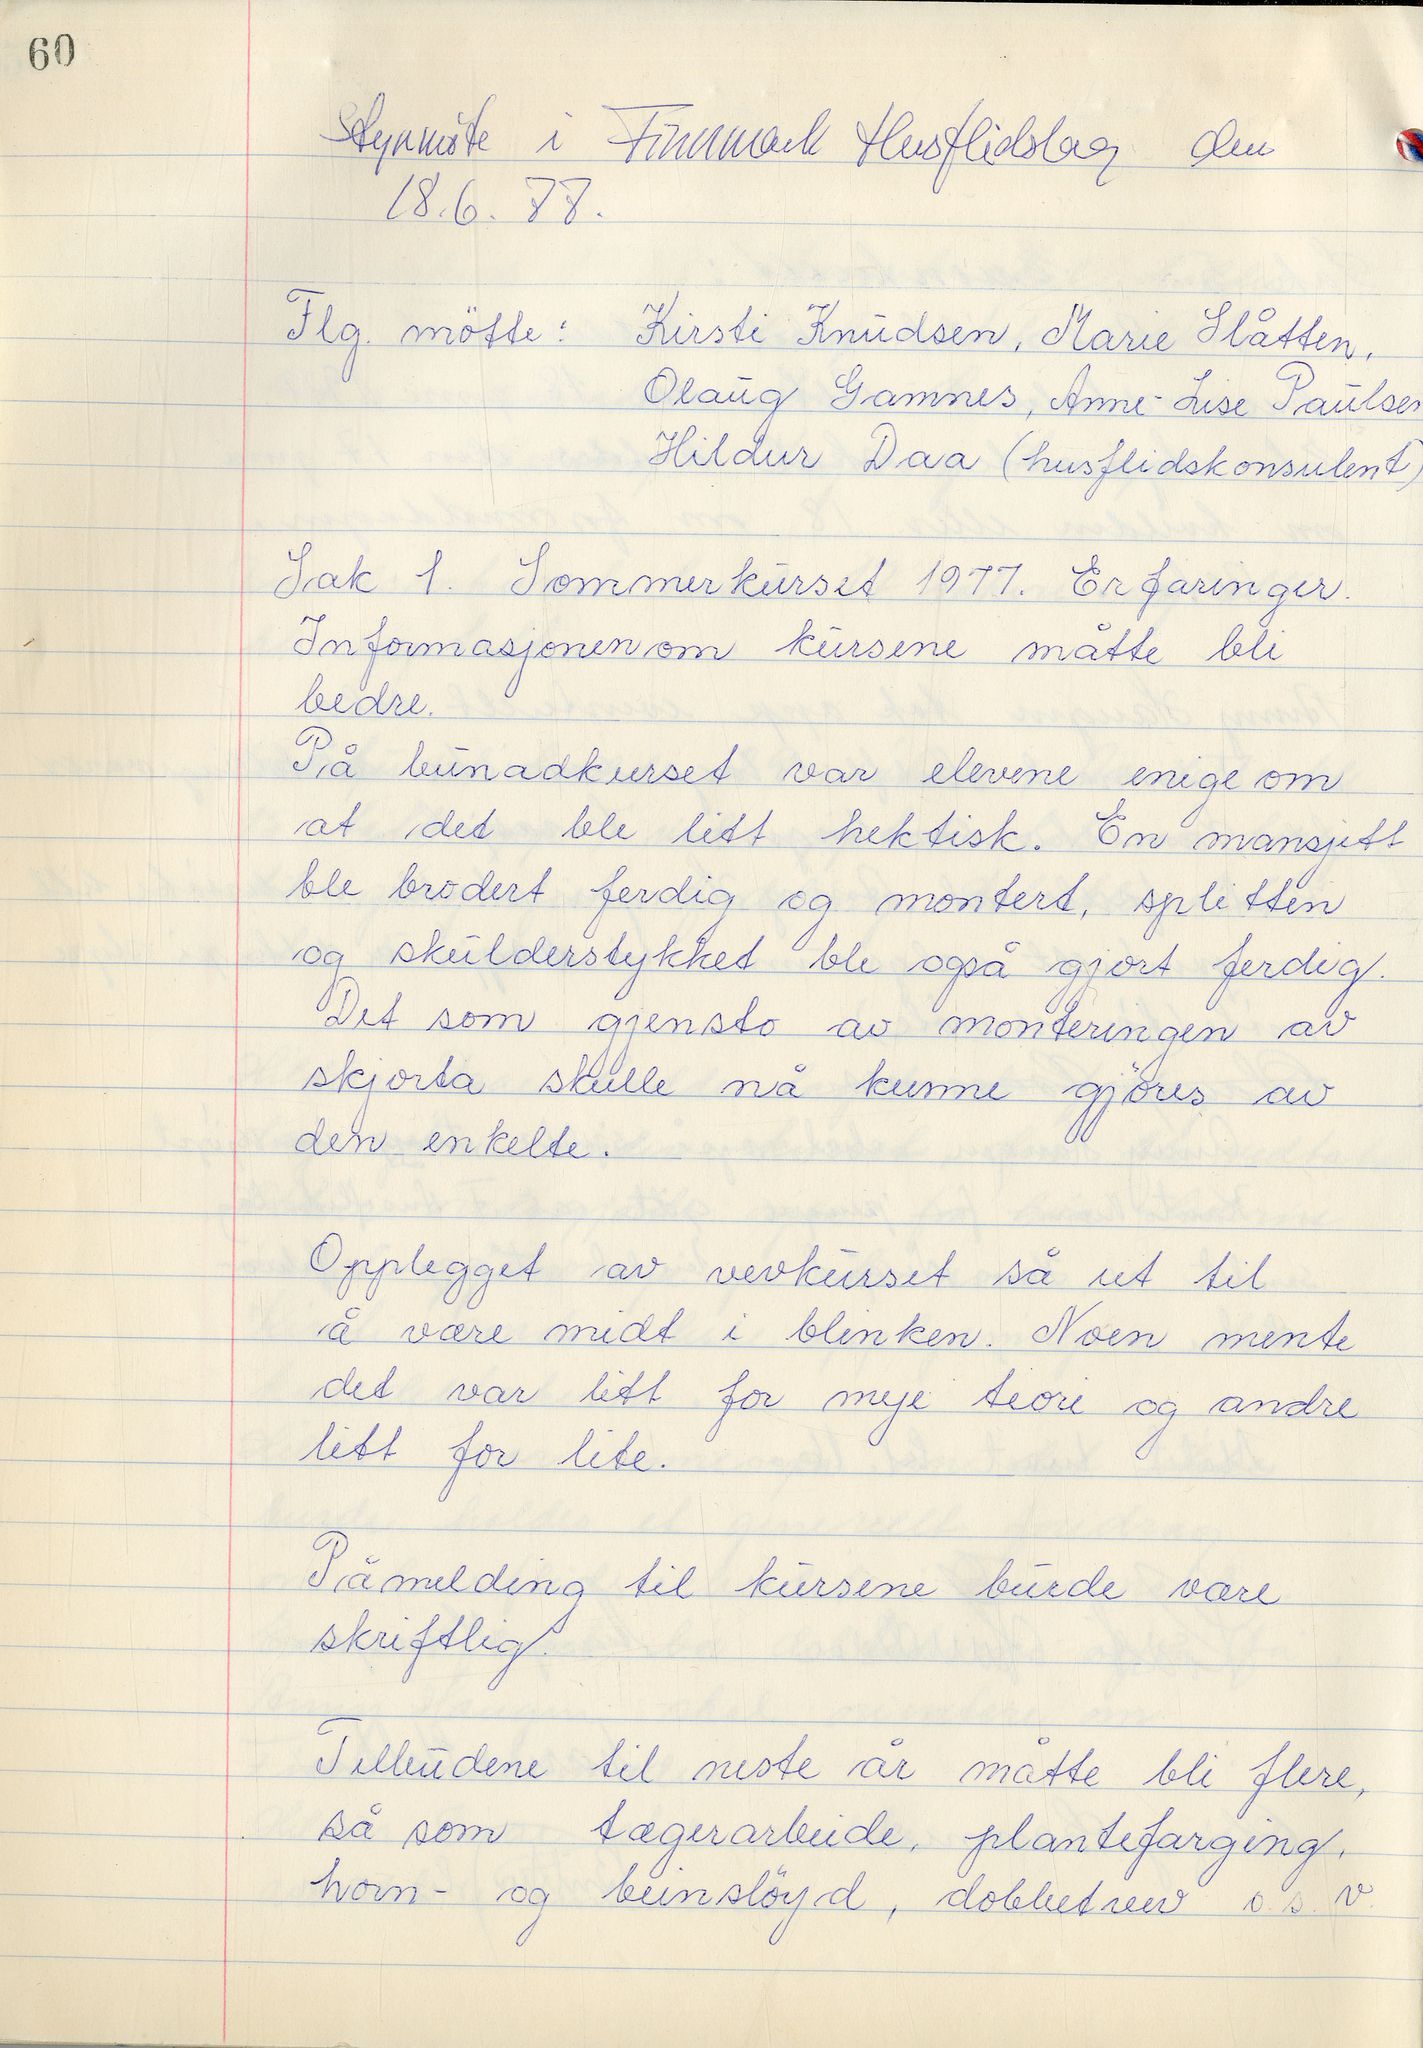 60
Styrmöte i Finnmark Husflidslag den
18.6.77.
Flg. mötte: Kirsti Knudsen, Marie Slåtten,
Olaug Gamnes, Anne-Lise Paulsen
Hildur Daa (husflidskonsulent)
Sak 1. Sommerkurset 1977. Erfaringer.
Informasjonen om kursene måtte bli
bedre.
På bunadkurset var elevene enige om
at det ble litt hektisk. En mansjett
ble brodert ferdig og montert, splitten
og skulderstykket ble også gjort ferdig.
Det som gjensto av monteringen av
skjorta skulle nå kunne gjöres av
den enkelte.
Opplegget av vevkurset så ut til
å være midt i blinken. Noen mente
det var litt for meje teori og andre
litt for lite.
Påmelding til kursene burde være
skriftlig.
Tilbudene til neste år måtte bli flere,
så som tægerarbeide, plantefarging,
horn- og beinslöyd, dobbetvev o.s.v.